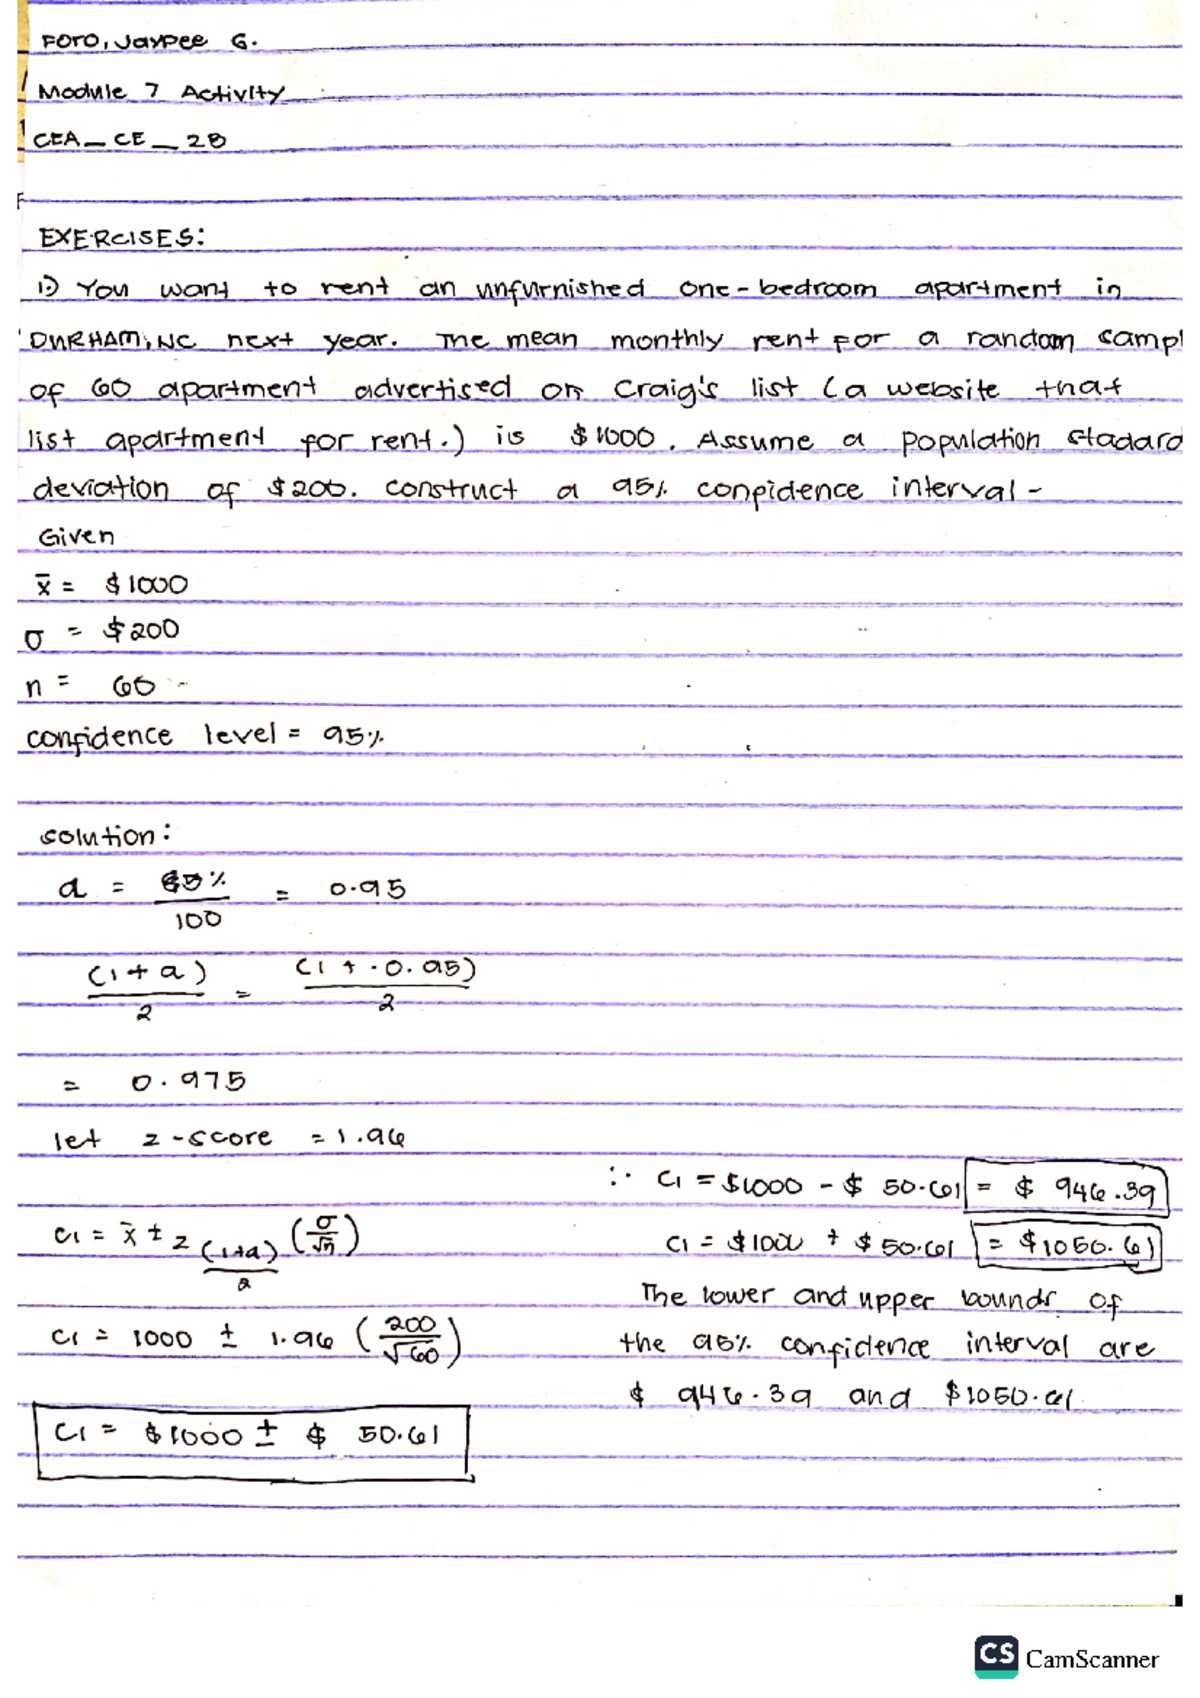 FORO, Jaypee G.
Module 7 Activity
CEA_CE_2B
EXERCISES:
1.) You want to rent an unfurnished one-bedroom apartment in
DURHAM, NC next year. The mean monthly rent for a random sampl
of 60 apartment advertised on Craig's list (a website that
list apartment for rent.) is $1000. Assume a population stadard
deviation of $200. construct a 95% confidence interval-
Given
x̄ = $1000
σ = $200
n = 60
confidence level = 95%
solution:
a = 95% / 100 = 0.95
(1 + a) / 2 = (1 + .0.95) / 2
= 0.975
let z-score = 1.96
CI = x̄ ± z (1+a)/2 (σ/√n)
CI = 1000 ± 1.96 (200/√60)
CI = $1000 ± $ 50.61
∴ CI = $1000 - $ 50.61 = $ 946.39
CI = $1000 + $ 50.61 = $1050.61
The lower and upper bounds of
the 95% confidence interval are
$ 946.39 and $1050.61
CS CamScanner